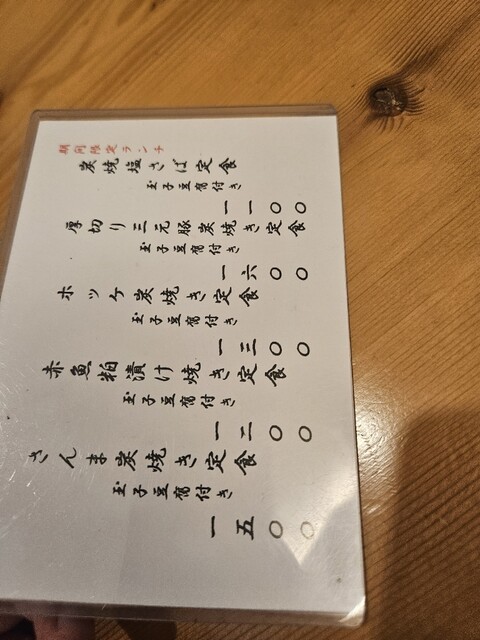 期間限定ランチ
炭焼塩さば定食
玉子豆腐付き
一一〇〇
厚切り三元豚炭焼き定食
玉子豆腐付き
一六〇〇
ホッケ炭焼き定食
玉子豆腐付き
一三〇〇
赤魚粕漬け焼き定食
玉子豆腐付き
一二〇〇
さんま炭焼き定食
玉子豆腐付き
一五〇〇